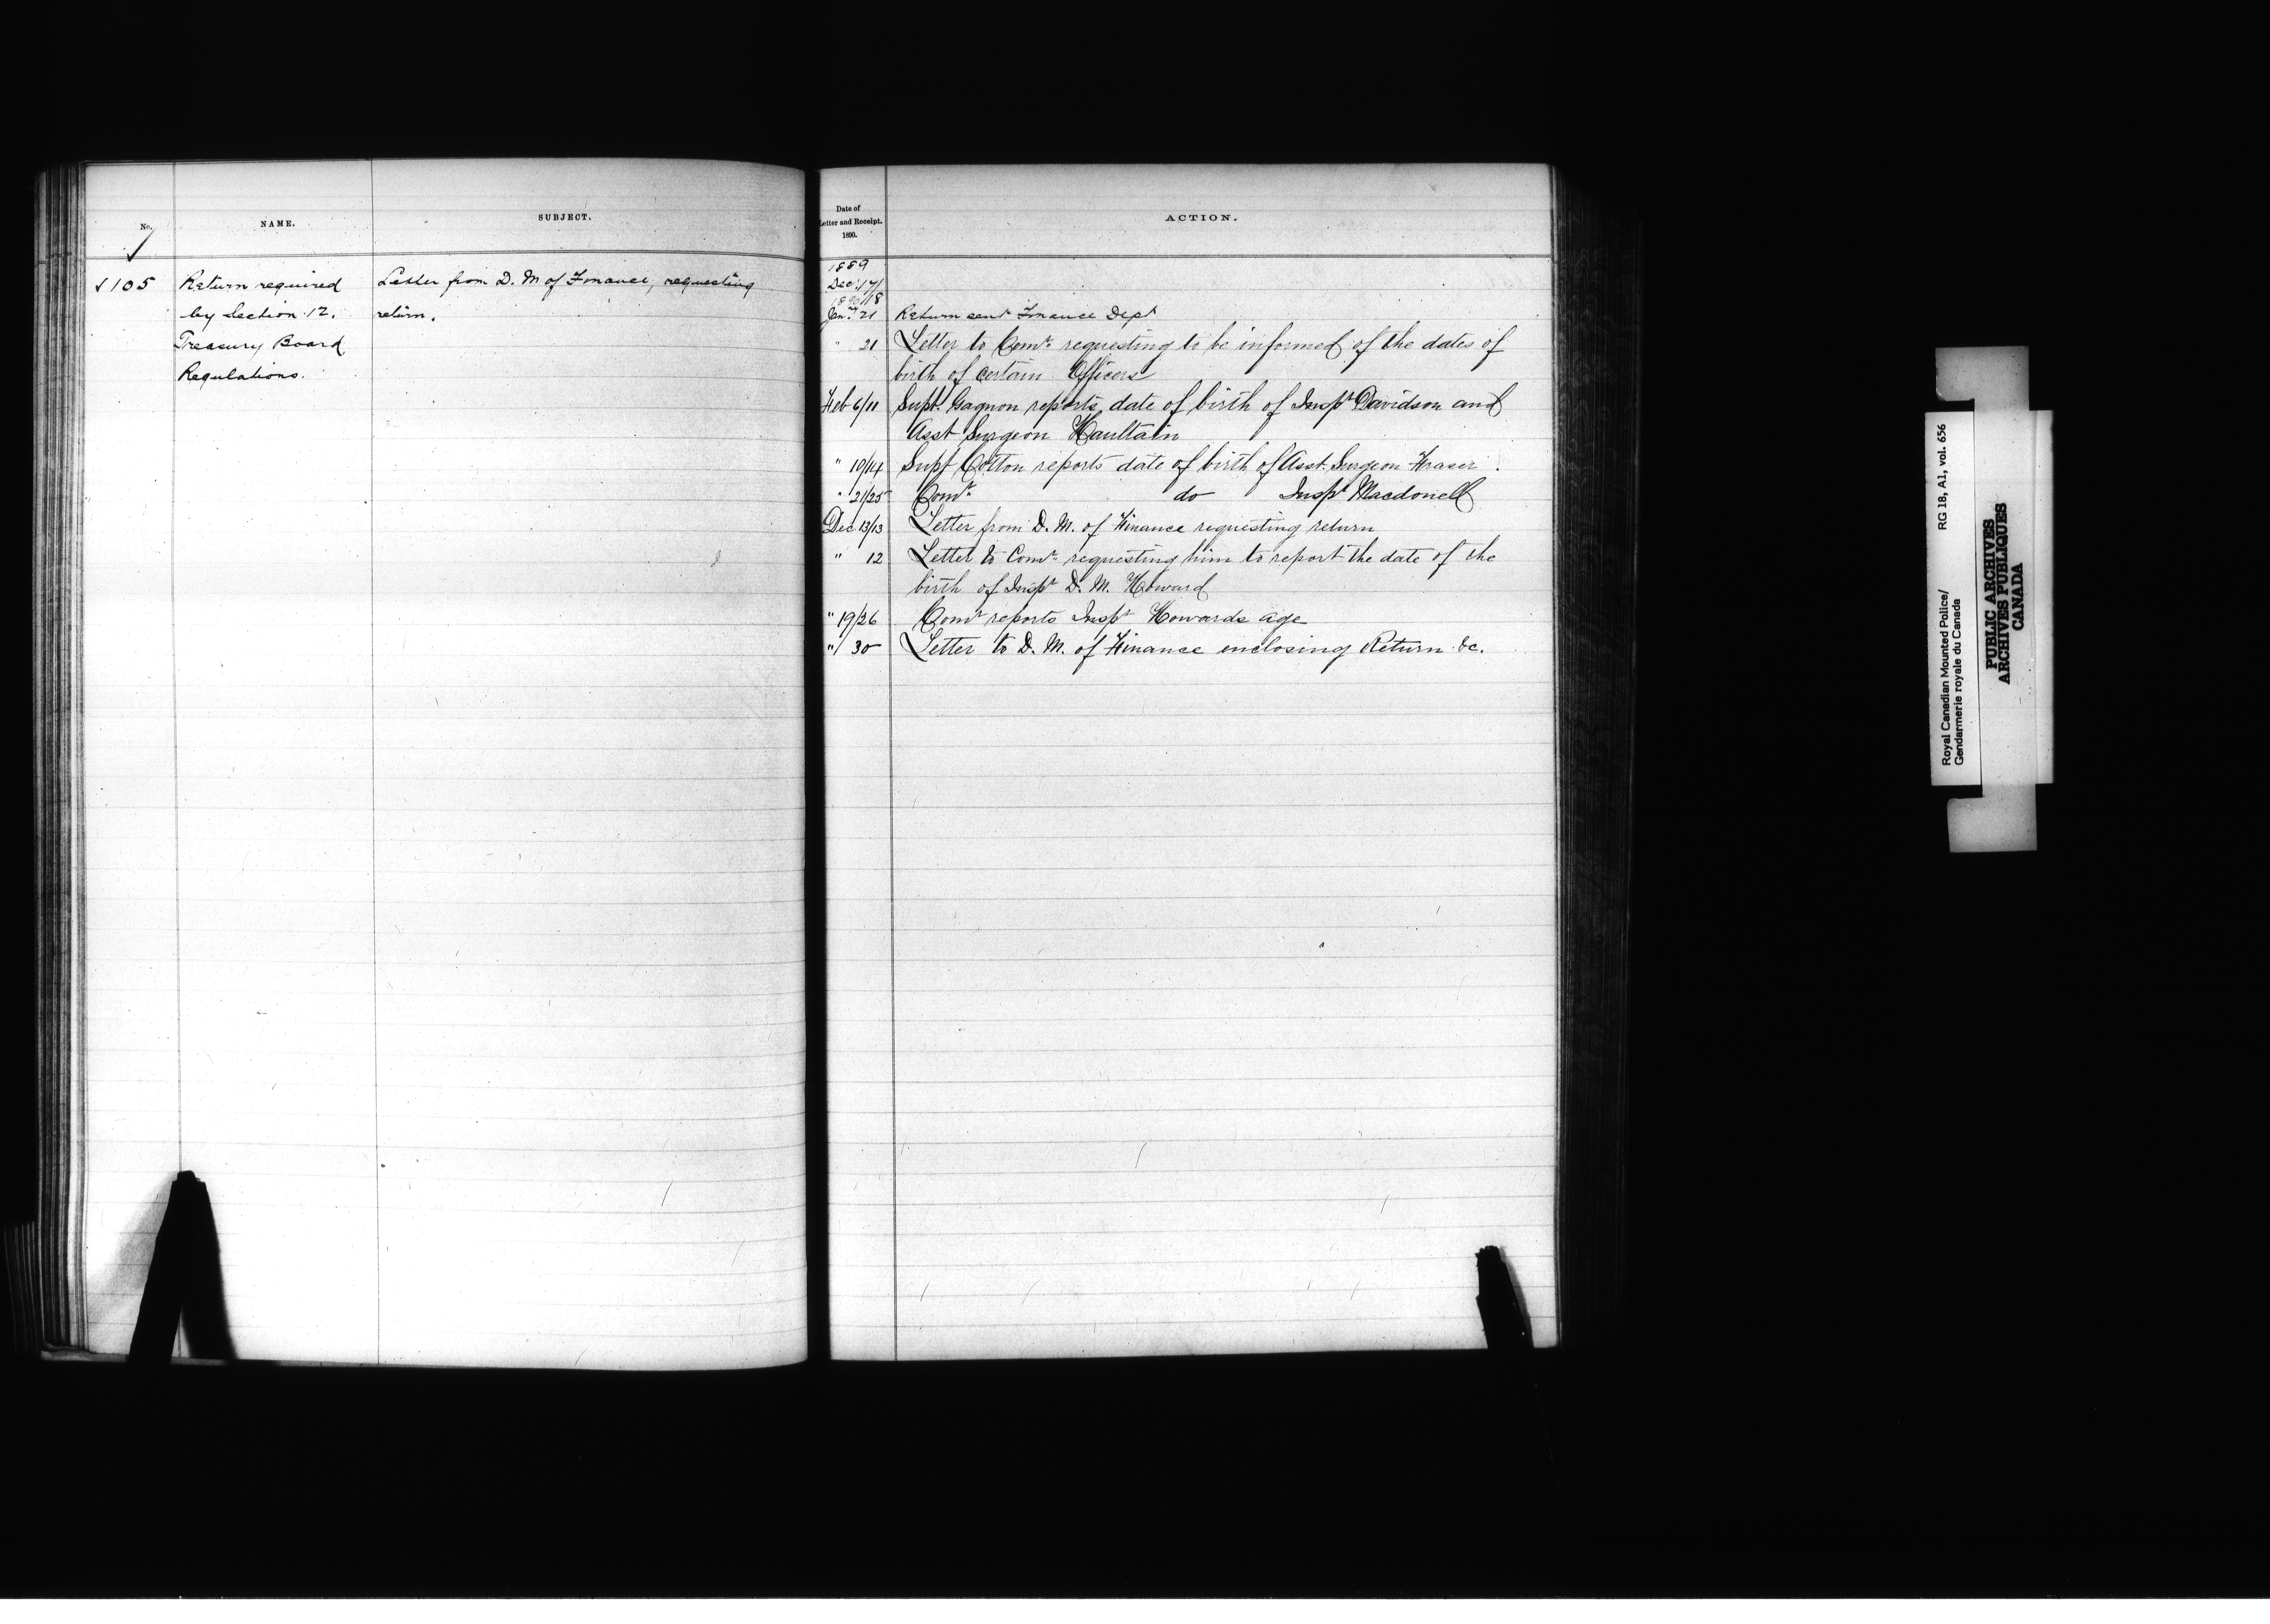 No.
NAME.
SUBJECT.
✓105
Return required
by Section 12.
Treasury Board
Regulations.
Letter from D. M of Finance, requesting
return.
Date of
Letter and Receipt.
1890.
ACTION.
1889
Dec 17/
1890 18
Jany 21 Return sent Finance Dept
" 21 Letter to Comr requesting to be informed of the dates of
birth of certain Officers
Feb 6/11 Supt. Gagnon reports date of birth of Inspr Davidson and
Asst Surgeon Haultain
" 10/14 Supt Cotton reports date of birth of Asst. Surgeon Fraser.
" 21/25 Comr do Inspr Macdonell
Dec 13/13 Letter from D. M. of Finance requesting return
" 12 Letter to Comr requesting him to report the date of the
birth of Inspr D. M. Howard
" 19/26 Comr reports Inspr Howards age
" 30 Letter to D. M. of Finance enclosing Return &c.
Royal Canadian Mounted Police/ RG 18, A1, vol. 656
Gendarmerie royale du Canada
PUBLIC ARCHIVES
ARCHIVES PUBLIQUES
CANADA